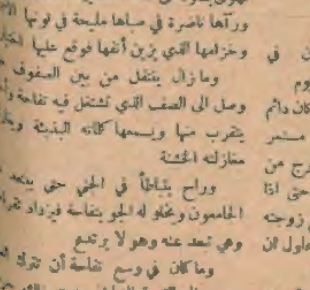 ورآها ناضرة في صباها مليحة في لونها
وخزامها الذي يزين أنفها فوقع عليها
وما زال ينتقل من بين الصفوف
وصل الى الصف الذي تشتغل فيه تفاحة
يتقرب منها ويسمعها كلماته البذيئة
مغازلته الخشنة
وراح يتباطأ في الجني حتى يبتعد
الجامعون ويخلو له الجو بتفاحة فيزداد
وهي تبعد عنه وهو لا يرتدع
وما كان في وسع تفاحة أن تترك
في
وم
كان دائم
مستمر
خرج من
حتى اذا
زوجته
حاول ان